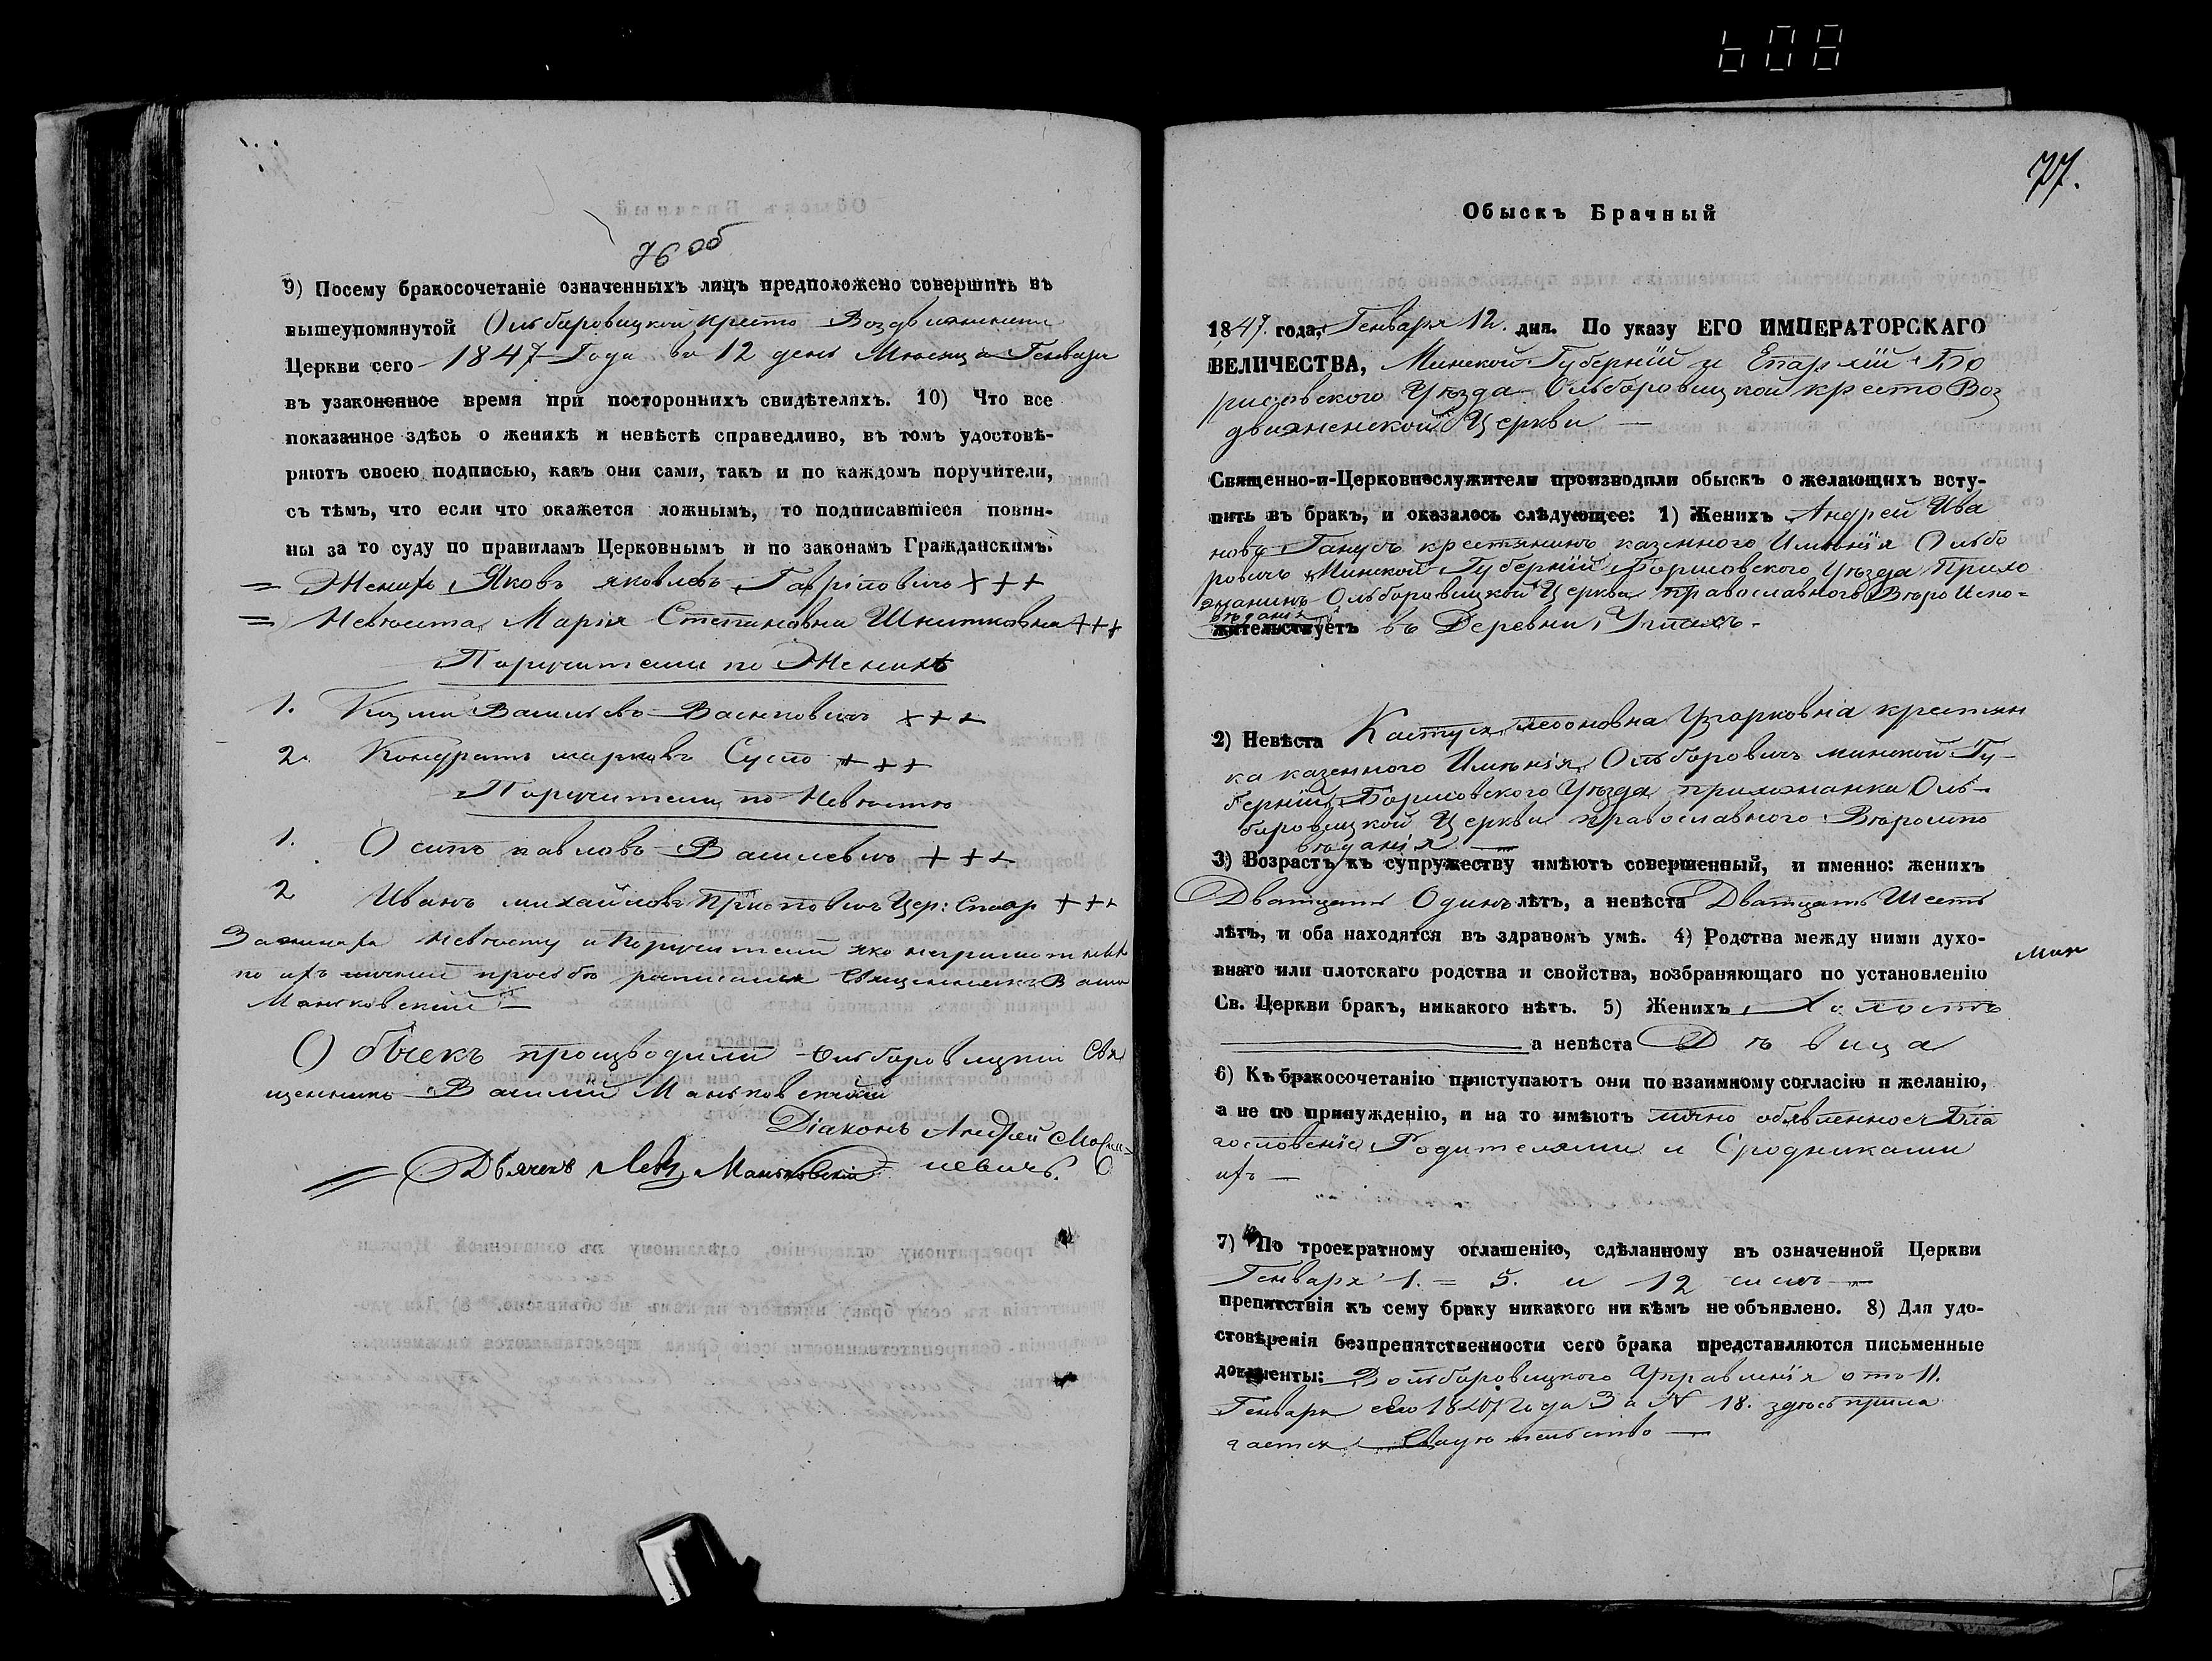 608
76 об
9) Посему бракосочетаніе означенныхъ лицъ предположено совершить въ
вышеупомянутой Ольборовицкой Кресто Воздвиженской
Церкви сего 1847 Года въ 12 день Мѣсяца Генваря
въ узаконенное время при постороннихъ свидѣтеляхъ. 10) Что все
показанное здѣсь о женихѣ и невѣстѣ справедливо, въ томъ удостовѣ-
ряютъ своею подписью, какъ они сами, такъ и по каждомъ поручители,
съ тѣмъ, что если что окажется ложнымъ, то подписавшіеся повин-
ны за то суду по правиламъ Церковнымъ и по законамъ Гражданскимъ.
= Женихъ Яковъ Яковлевъ Гавриловичъ +++
= Невѣста Марія Степановна +++
Поручители по Женихѣ
1. Васильевъ Васьковичъ +++
2. Кондратъ Марковъ Сусло +++
Поручители по Невѣстѣ
1. Осипъ Павловъ Василевичъ +++
2 Иванъ Михайловъ Цер: +++
За жениха Невѣсту и Поручителей яко неграмотныхъ
по ихъ личной просьбѣ росписался Священникъ
Маньковскій —
Обыскъ производили Ольборовицкій Свя
щенникъ Василій Маньковскій
Діаконъ Андрей
= Дьячекъ Маньковскій
77.
Обыскъ Брачный
1847. года, Генваря 12. дня. По указу ЕГО ИМПЕРАТОРСКАГО
ВЕЛИЧЕСТВА, Минской Губерніи и Епархіи Бо
рисовского Уѣзда Ольборовицкой Кресто Воз
движенской Церкви —
Священно-и-Церковнослужители производили обыскъ о желающихъ всту-
пить въ бракъ, и оказалось слѣдующее: 1) Женихъ Андрей Ива
новъ Ганусъ крестянинъ казенного Имѣнія Ольбо
ровичъ Минской Губерніи Борисовского Уѣзда Прихо
жанинъ Ольборовицкой Церкви православного Вѣро Испо=
вѣданія
жительствуетъ въ Деревни
2) Невѣста Леоновна крестян
ка казенного Имѣнія Ольборовичъ Минской Гу-
берніи Борисовского Уѣзда прихожанка Оль-
боровицкой Церкви православного Вѣроиспо
вѣданія —
3) Возрастъ къ супружеству имѣютъ совершенный, и именно: женихъ
Дватцать Одинъ лѣтъ, а невѣста Дватцать Шесть
лѣтъ, и оба находятся въ здравомъ умѣ. 4) Родства между ними духо-
внаго или плотскаго родства и свойства, возбраняющаго по установленію
Св. Церкви бракъ, никакого нѣтъ. 5) Женихъ Холостъ
а невѣста Дѣвица
6) Къ бракосочетанію приступаютъ они по взаимному согласію и желанію,
а не по принужденію, и на то имѣютъ лично обявленное Бла
гословеніе Родителями и Сродниками
ихъ —
7) По троекратному оглашенію, сдѣланному въ означенной Церкви
Генваря 1. = 5. и 12 числъ —
препятствія къ сему браку никакого ни кѣмъ не объявлено. 8) Для удо-
стовѣренія безпрепятственности сего брака представляются письменные
документы: Ольборовицкого Управленія отъ 11.
Генваря сего 1847 Года За N 18. здѣсь прила
гается Свидѣтельство —